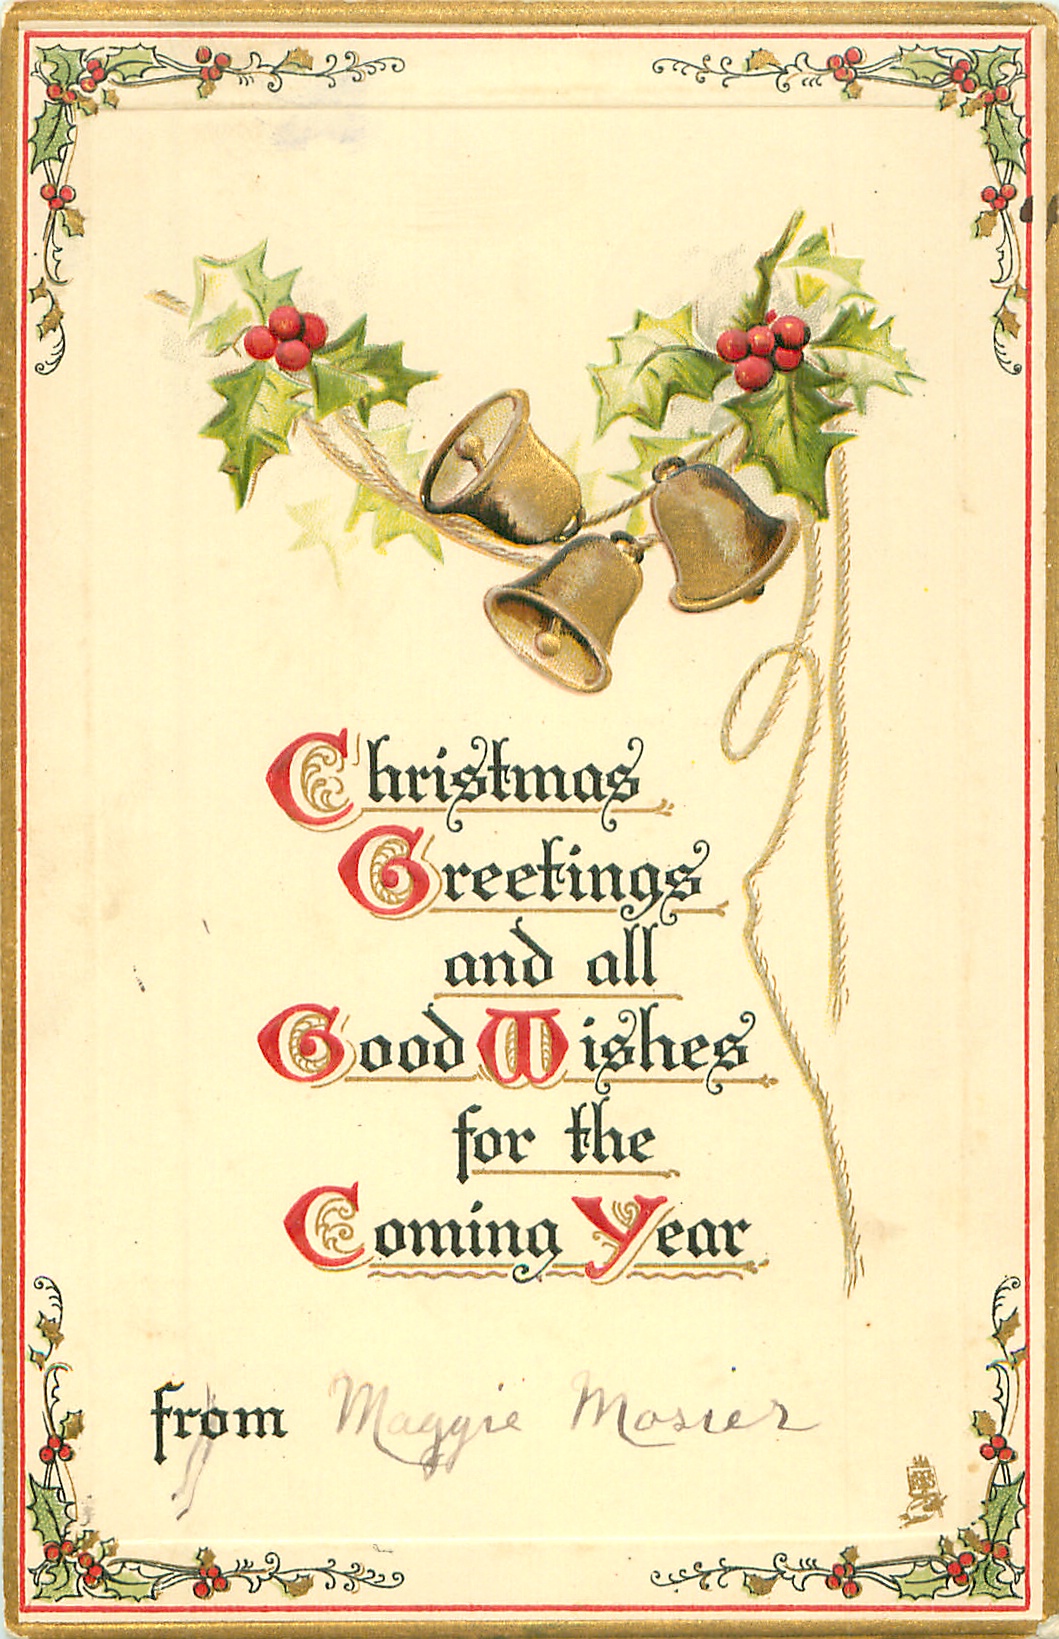 Christmas
Greetings
and all
Good Wishes
for the
Coming Year
from Maggie Mosier